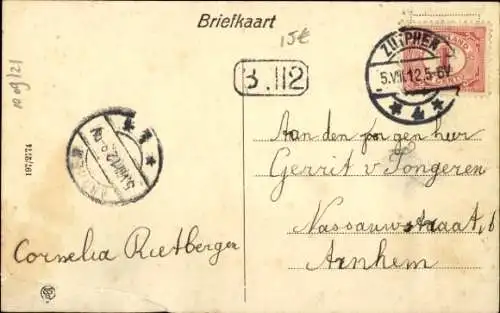 Briefkaart
15€
ZUTPHEN
5.VII.12.5-6V
4
B.112
10 09/21
197/2574
ARNHEM
Aan den jongen heer
Gerrit v. Tongeren
Nassauwstraat, 6
Arnhem
Cornelia Rietberger